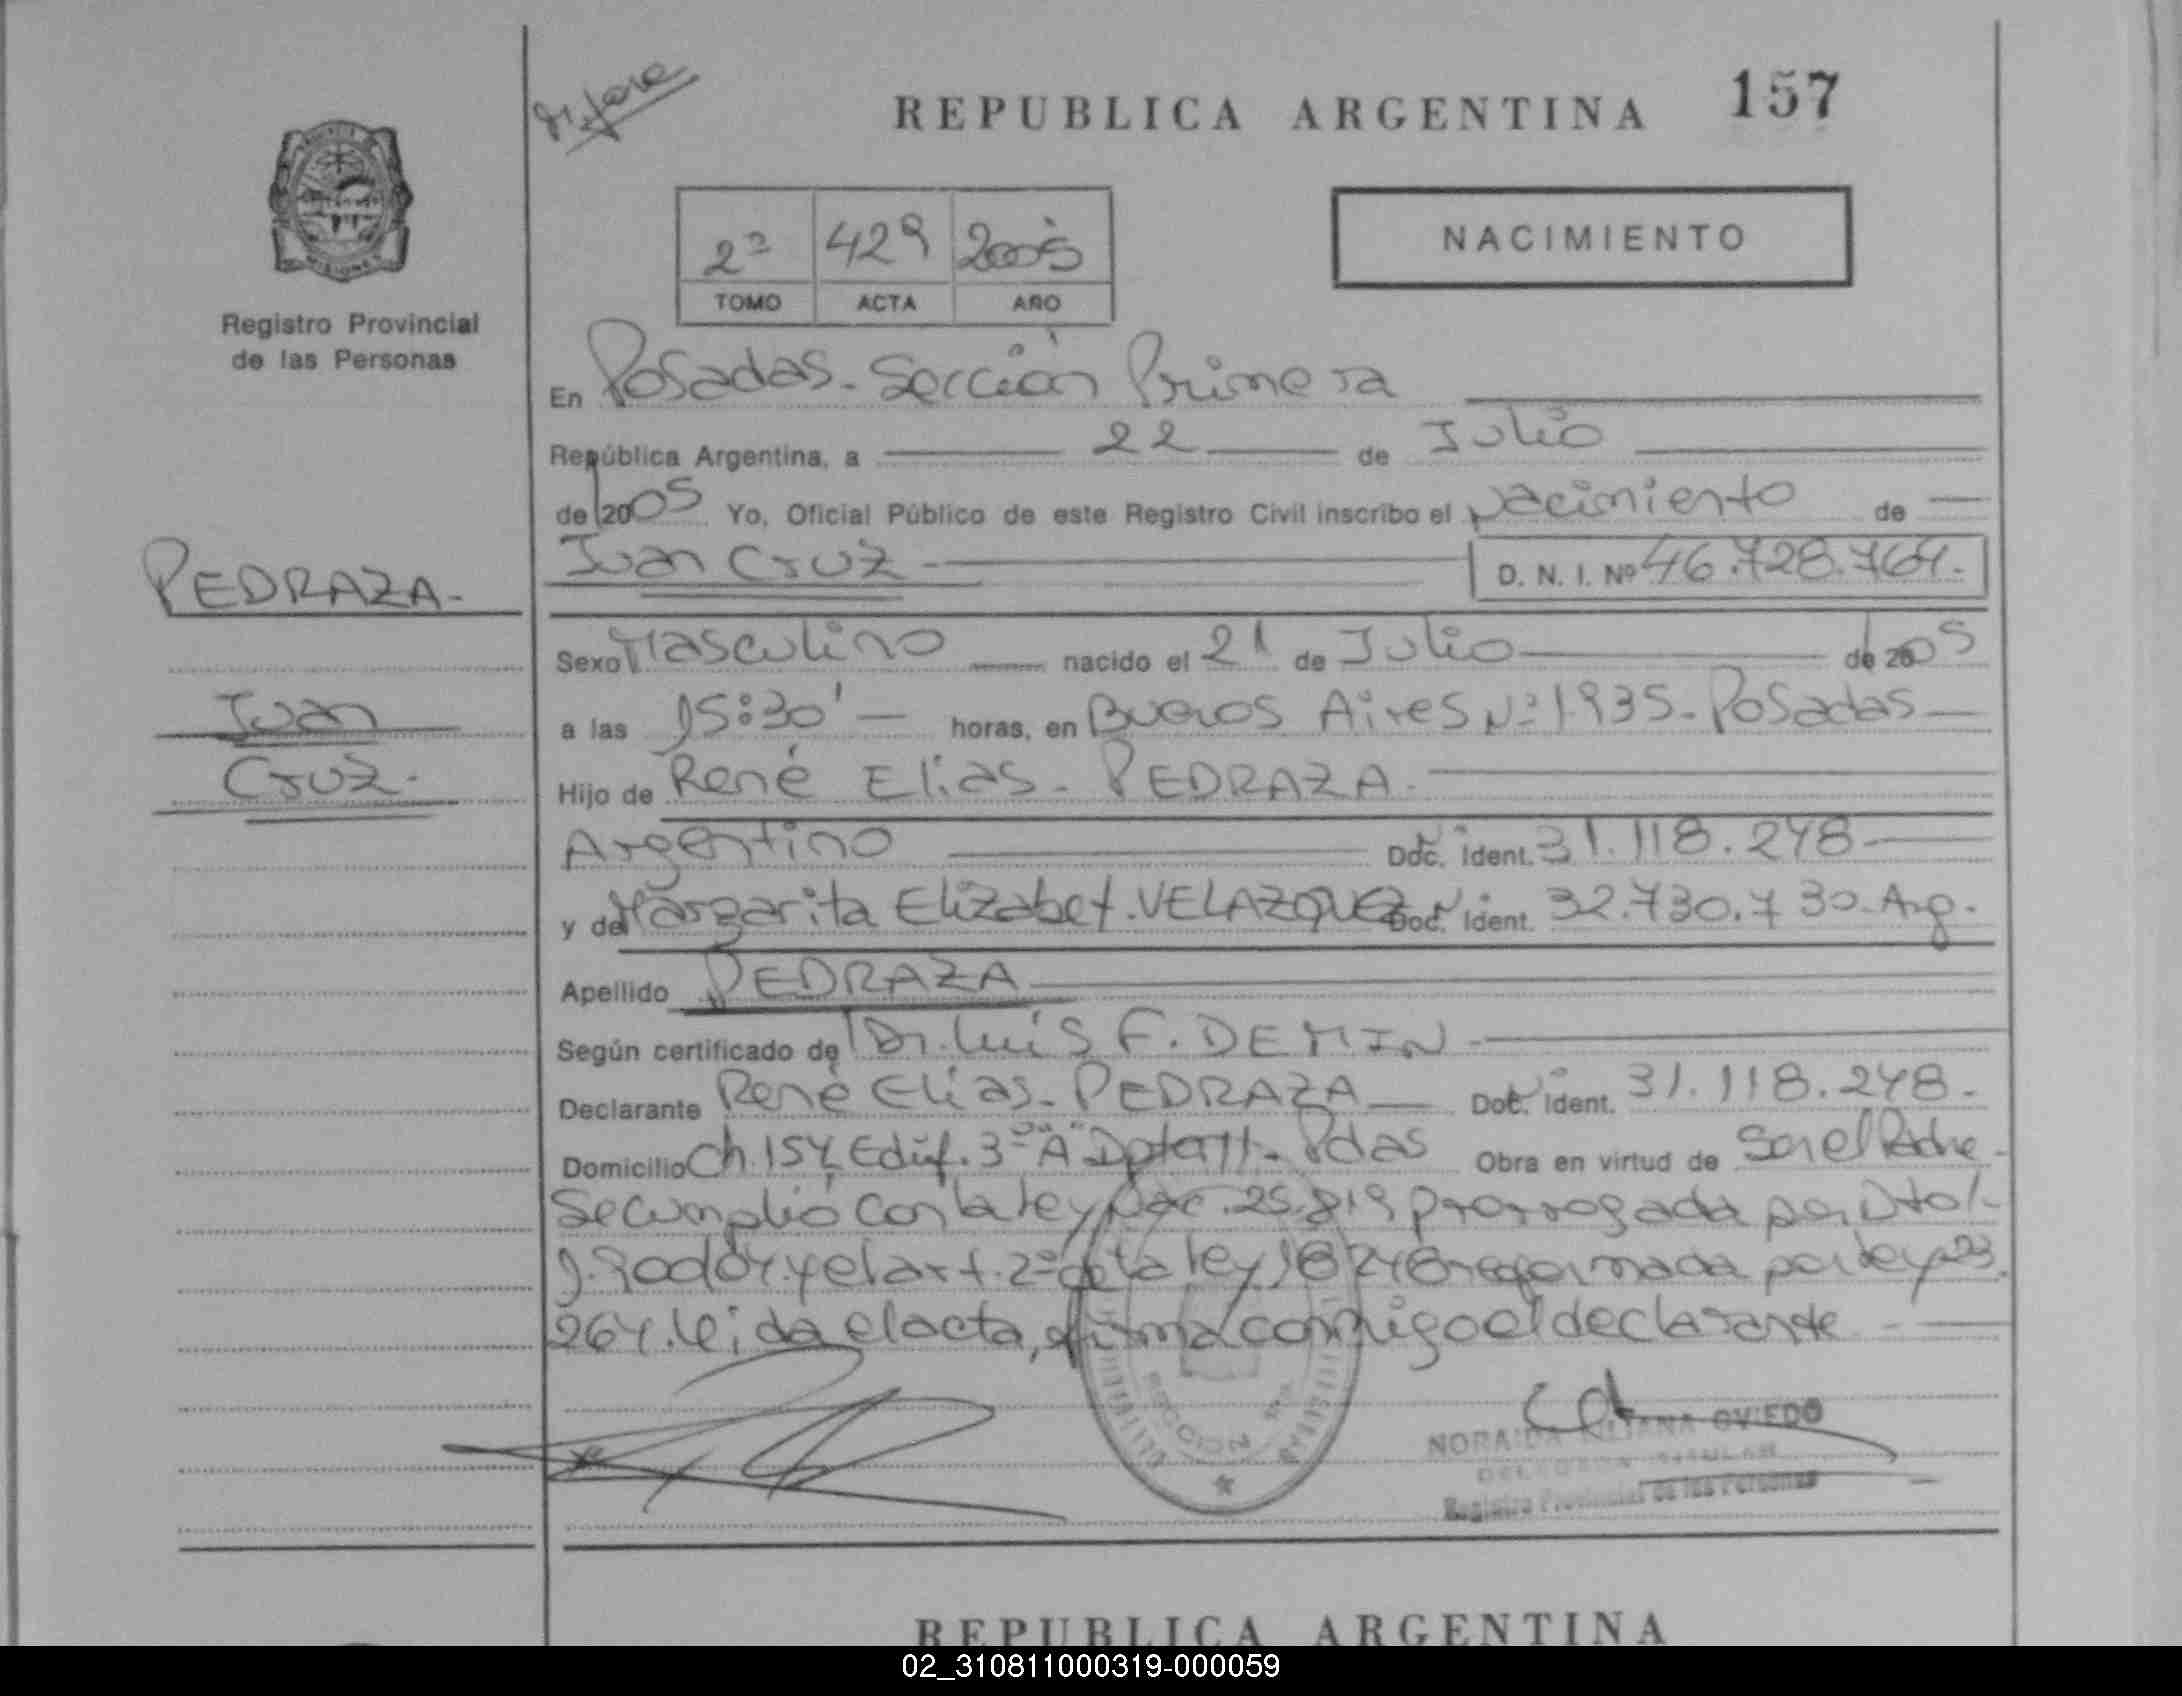 REPUBLICA ARGENTINA 157
2º 429 2005
TOMO ACTA AÑO
NACIMIENTO
MISIONES
Registro Provincial
de las Personas
En Posadas - Sección Primera
República Argentina, a 22 de Julio
de 2005 Yo, Oficial Público de este Registro Civil inscribo el Nacimiento de
Juan Cruz D. N. I. Nº 46.728.764.
PEDRAZA.
Juan
Cruz.
Sexo Masculino nacido el 21 de Julio de 2005
a las 15:30' horas, en Buenos Aires Nº 1935 - Posadas
Hijo de René Elias - PEDRAZA
Argentino Doc. Ident. 31.118.248
y de Margarita Elizabet. VELAZQUEZ Doc. Ident. 32.730.730 - Arg.
Apellido PEDRAZA
Según certificado de Dr. Luis F. DEMIN
Declarante René Elias - PEDRAZA Doc. Ident. 31.118.248.
Domicilio Ch. 154, Edif. 3º "A" Dpto - Pdas Obra en virtud de Ser el Padre
Se cumplió con la ley Nac. 25.819 prorrogada por Dto
y el art. 2º de la ley 18248 reformada por ley 23.
264. Leida el acta, firma conmigo el declarante
SECCION
NORAIDA LILIANA OVIEDO
DELEGADA TITULAR
Registro Provincial de las Personas
REPUBLICA ARGENTINA
02_310811000319-000059